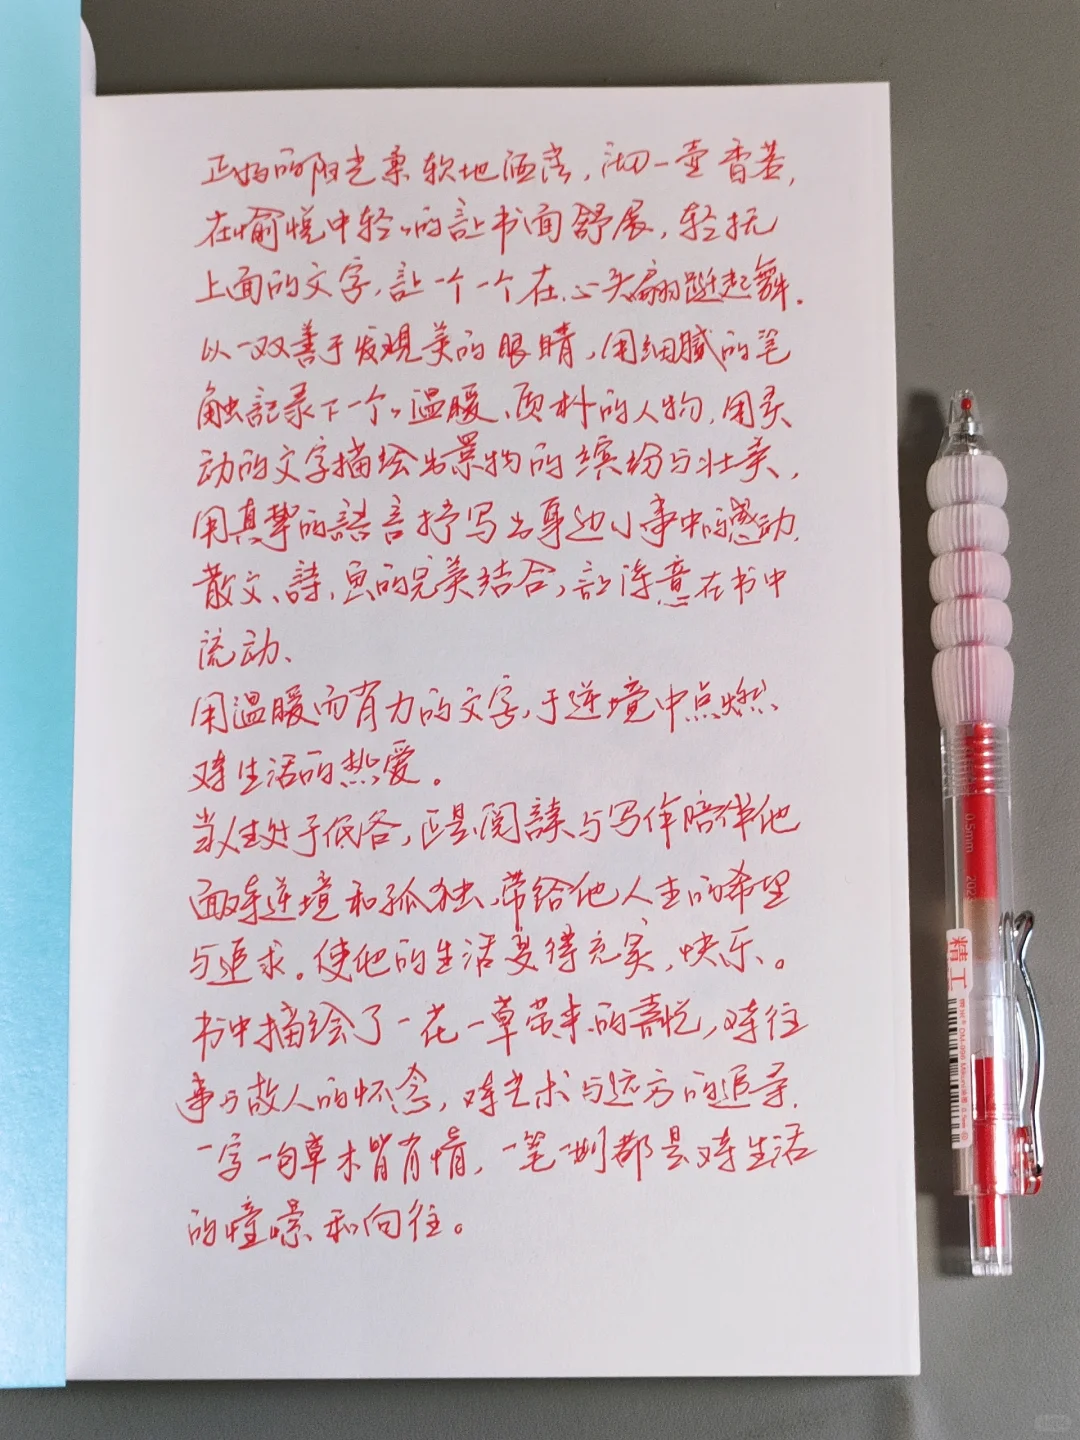 正好的阳光柔软地洒落，沏一壶香茗，
在愉悦中轻々的記书面舒展，轻抚
上面的文字，讓一个一个在心头翩跹起舞．
以一双善于发現美的眼睛，用细腻的笔
触記录下一个々温暖、质朴的人物，用灵
动的文字描绘出景物的缤纷与壮美，
用真挚的語言抒写出身边小事中的感动．
散文、詩、画的完美结合，讓诗意在书中
流动、
用温暖而有力的文字，于逆境中点燃
对生活的热爱。
当人生处于低谷，正是阅讀与写作陪伴他
面对逆境和孤独，带给他人生的希望
与追求。使他的生活变得充实，快乐。
书中描绘了一花一草带来的喜悦，对往
事与故人的怀念，对艺术与远方的追寻．
一字一句草木皆有情，一笔一划都是对生活
的憧憬和向往。
0.5mm
精工